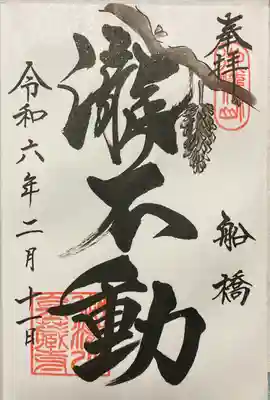 奉拝
船橋
瀧不動
令和六年二月十一日